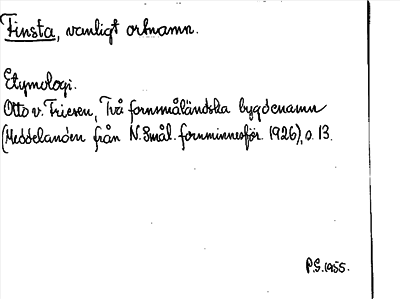 Finsta, vanligt ortnamn.
Etymologi.
Otto v. Friesen, Två fornsmåländska bygdenamn
(Meddelanden från N. Smål. fornminnesför. 1926), s. 13.
P.G. 1955.